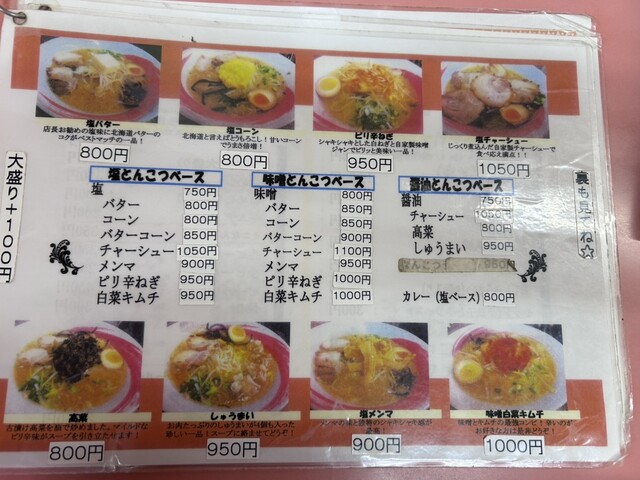 塩バター
店長お勧めの塩味に北海道バターの
コクがベストマッチの一品！
800円
塩コーン
北海道と言えばとうもろこし！甘いコーン
でうまさ倍増！
800円
ピリ辛ねぎ
シャキシャキとした白ねぎと自家製味噌
ジャンでピリッと美味い一品！
950円
塩チャーシュー
じっくり煮込んだ自家製チャーシューで
食べ応え満点！！
1050円
大盛り＋100円
塩とんこつベース
塩 750円
バター 800円
コーン 800円
バターコーン 850円
チャーシュー 1050円
メンマ 900円
ピリ辛ねぎ 950円
白菜キムチ 950円
味噌とんこつベース
味噌 800円
バター 850円
コーン 850円
バターコーン 900円
チャーシュー 1100円
メンマ 950円
ピリ辛ねぎ 1000円
白菜キムチ 1000円
醤油とんこつベース
醤油 750円
チャーシュー 1050円
高菜 800円
しゅうまい 950円
カレー（塩ベース） 800円
裏も見てね☆
高菜
古漬け高菜を油で炒めました。マイルドな
ピリ辛味がスープを引き立たせます！
800円
しゅうまい
お肉たっぷりのしゅうまいが4個も入った
珍しい一品！スープに絡ませてどうぞ！
950円
塩メンマ
900円
味噌白菜キムチ
味噌とキムチの最強コンビ！辛いのが
お好きな方は是非どうぞ！
1000円